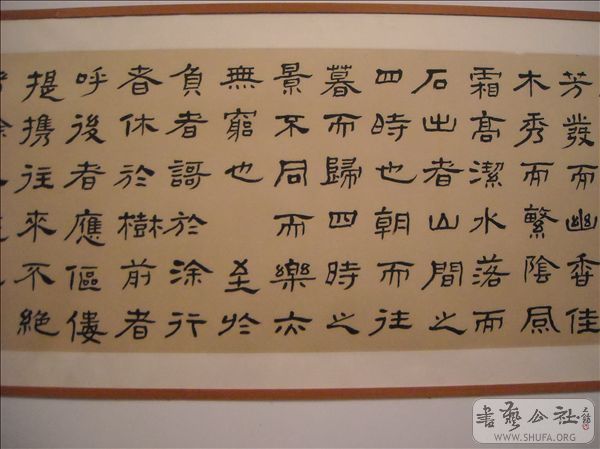 芳發而幽香佳
木秀而繁陰風
霜高潔水落而
石出者山間之
四時也朝而往
暮而歸四時之
景不同而樂亦
無窮也 至於
負者謌於涂行
者休於樹前者
呼後者應傴僂
提携往來不絕
書藝公社
WWW.SHUFA.ORG